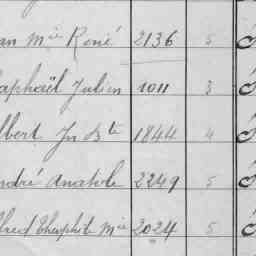 an Mie René 2136 5
aphaël Julien 1011 3
lbert Jn Bte 1844 4
ndré Anatole 2249 5
lfred Théophile Mie 2024 5